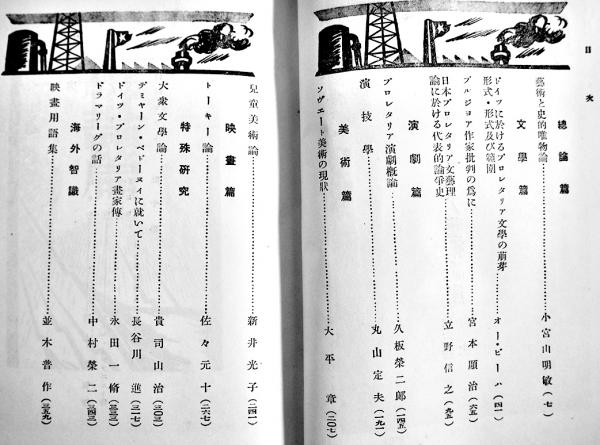 目次
總論篇
藝術と史的唯物論……………小宮山明敏(七)
文學篇
ドイツに於けるプロレタリア文學の萠芽
形式・形式及び範圍……………オー・ビーハ(四一)
ブルジョア作家批判の爲に……………宮本顯治(六五)
日本プロレタリア文藝理
論に於ける代表的論爭史……………立野信之(九五)
演劇篇
プロレタリア演劇概論……………久板榮二郎(一四五)
演技學……………丸山定夫(一九一)
美術篇
ソヴエート美術の現狀……………大平章(二〇七)
兒童美術論……………新井光子(二四一)
映畫篇
トーキー論……………佐々元十(二六七)
特殊研究
大衆文學論……………貴司山治(三〇三)
デミヤーン・ベドーヌイに就いて……………長谷川進(三一七)
ドイツ・プロレタリア畫家傳……………永田一脩(三三三)
ドラマリーグの話……………中村榮二(三四三)
海外智識
映畫用語集……………並木晋作(三五九)